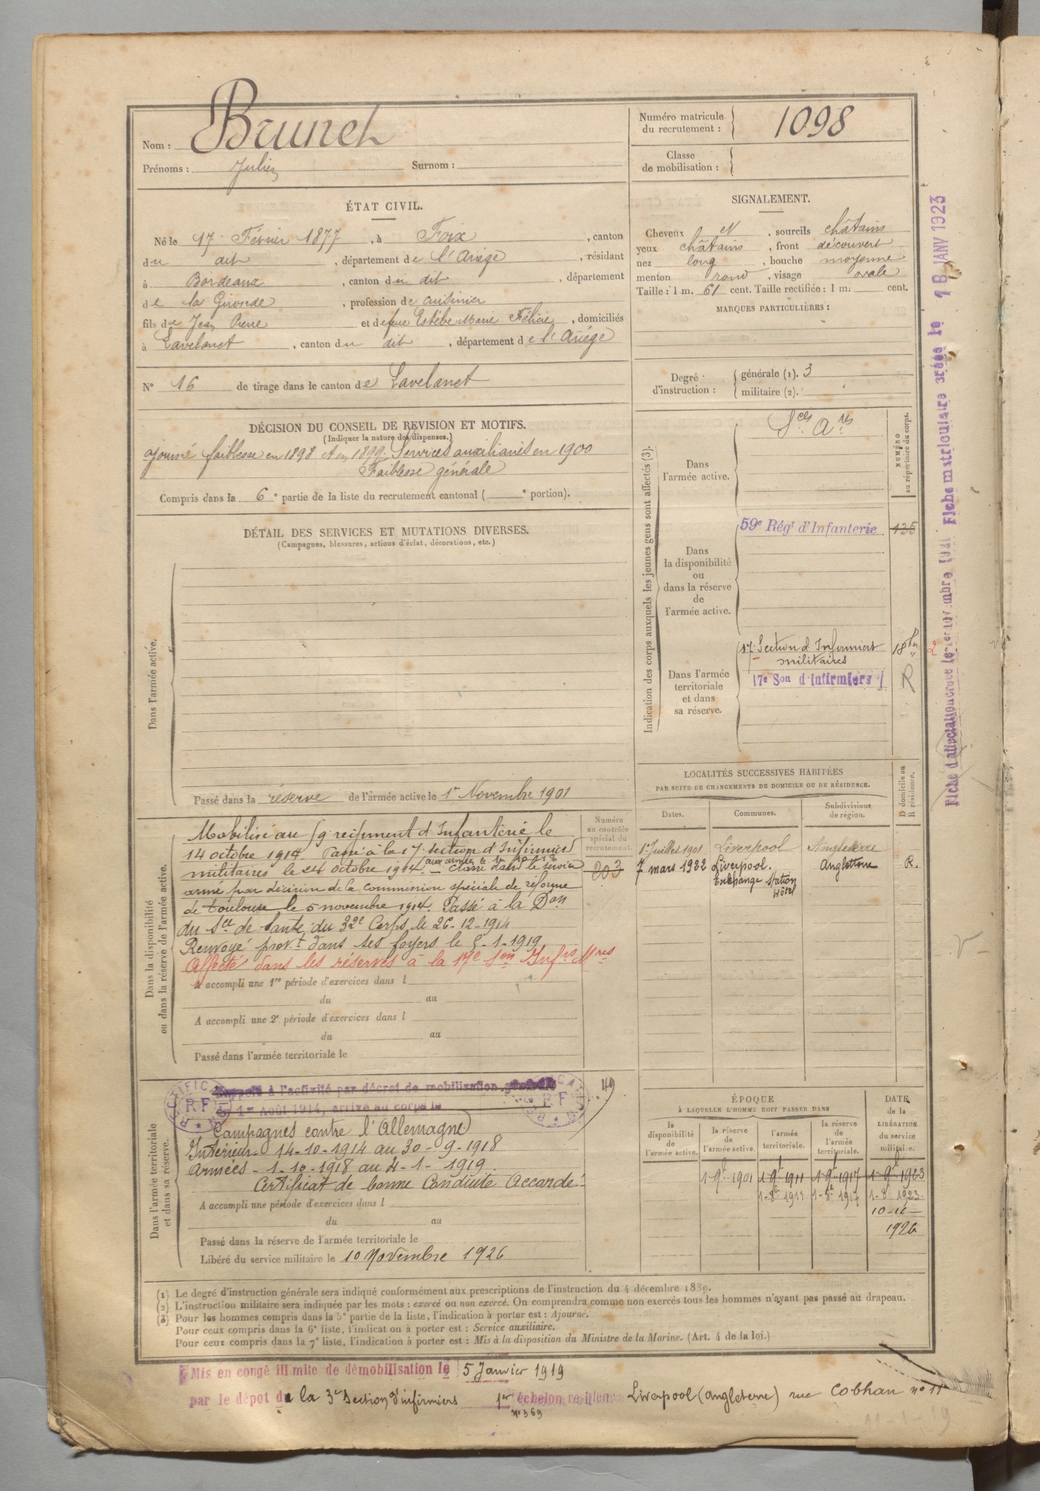 Nom : Brunet
Prénoms : Julien Surnom :
Numéro matricule du recrutement : 1098
Classe de mobilisation :
ÉTAT CIVIL.
Né le 17 Février 1877, à Foix, canton
du dit, département de l'Ariège, résidant
à Bordeaux, canton du dit, département
de la Gironde, profession de cuisinier
fils de Jean Pierre et de feue Estèbe Marie Félicie, domiciliés
à Lavelanet, canton du dit, département de l'Ariège
N° 16 de tirage dans le canton de Lavelanet
SIGNALEMENT.
Cheveux et, sourcils châtains
yeux châtains, front découvert
nez long, bouche moyenne
menton rond, visage ovale
Taille : 1 m. 61 cent. Taille rectifiée : 1 m. cent.
MARQUES PARTICULIÈRES :
Degré d'instruction : générale (1). 3
militaire (2).
DÉCISION DU CONSEIL DE REVISION ET MOTIFS.
(Indiquer la nature des dispenses.)
Ajourné faiblesse en 1898 et en 1899. Services auxiliaires en 1900
Faiblesse générale
Compris dans la 6e partie de la liste du recrutement cantonal ( e portion).
DÉTAIL DES SERVICES ET MUTATIONS DIVERSES.
(Campagnes, blessures, actions d'éclat, décorations, etc.)
Dans l'armée active.
Passé dans la réserve de l'armée active le 1er Novembre 1901
Indication des corps auxquels les jeunes gens sont affectés (3).
NUMÉRO au répertoire du corps.
Dans l'armée active.
Sces Ares
Dans la disponibilité ou dans la réserve de l'armée active.
59e Régt d'Infanterie
Dans l'armée territoriale et dans sa réserve.
17 Section d'Infirmiers
militaires
17e Son d'Infirmiers
R
LOCALITÉS SUCCESSIVES HABITÉES
PAR SUITE DE CHANGEMENTS DE DOMICILE OU DE RÉSIDENCE.
Dates. Communes. Subdivisions de région. D domicile ou R résidence.
1er Juillet 1901 Liverpool Angleterre
7 mars 1922 Liverpool. Angleterre R.
Exchange Station
Hôtel
Dans la disponibilité ou dans la réserve de l'armée active.
Numéro au contrôle spécial du recrutement.
203
Mobilisé au 59 régiment d'Infanterie le
14 octobre 1914 Passé à la 17 section d'Infirmiers
militaires le 24 octobre 1914. Classé dans le service
armé par décision de la commission spéciale de réforme
de Toulouse le 5 novembre 1914. Passé à la Don
du Sce de Santé du 32e Corps le 26-12-1914
Renvoyé provt dans ses foyers le 5-1-1919
Affecté dans les réserves à la 17e Son Infrs Mres
A accompli une 1re période d'exercices dans l
du au
A accompli une 2e période d'exercices dans l
du au
Passé dans l'armée territoriale le
Dans l'armée territoriale et dans sa réserve.
Rappelé à l'activité par décret de mobilisation générale
du 1er Août 1914, arrivé au corps le
RECTIFICATION RF
Campagnes contre l'Allemagne
Intérieur 14-10-1914 au 30-9-1918
Armées - 1-10-1918 au 4-1-1919
Certificat de bonne Conduite Accordé
A accompli une période d'exercices dans l
du au
Passé dans la réserve de l'armée territoriale le
Libéré du service militaire le 10 Novembre 1926
ÉPOQUE
À LAQUELLE L'HOMME DOIT PASSER DANS
DATE de la LIBÉRATION du service militaire.
la disponibilité de l'armée active. la réserve de l'armée active. l'armée territoriale. la réserve de l'armée territoriale.
1-9bre 1901 1-9bre 1911 1-9bre 1917 1-9bre 1923
10-11-
1926
(1) Le degré d'instruction générale sera indiqué conformément aux prescriptions de l'instruction du 4 décembre 1889.
(2) L'instruction militaire sera indiquée par les mots : exercé ou non exercé. On comprendra comme non exercés tous les hommes n'ayant pas passé au drapeau.
(3) Pour les hommes compris dans la 5e partie de la liste, l'indication à porter est : Ajourné.
Pour ceux compris dans la 6e liste, l'indication à porter est : Service auxiliaire.
Pour ceux compris dans la 7e liste, l'indication à porter est : Mis à la disposition du Ministre de la Marine. (Art. 4 de la loi.)
Mis en congé illimité de démobilisation le 5 Janvier 1919
par le dépôt de la 3e Section d'infirmiers 1er échelon Liverpool (Angleterre) rue Cobhan n° 11
N° 369
Fiche matriculaire créée le 18 JANV 1923